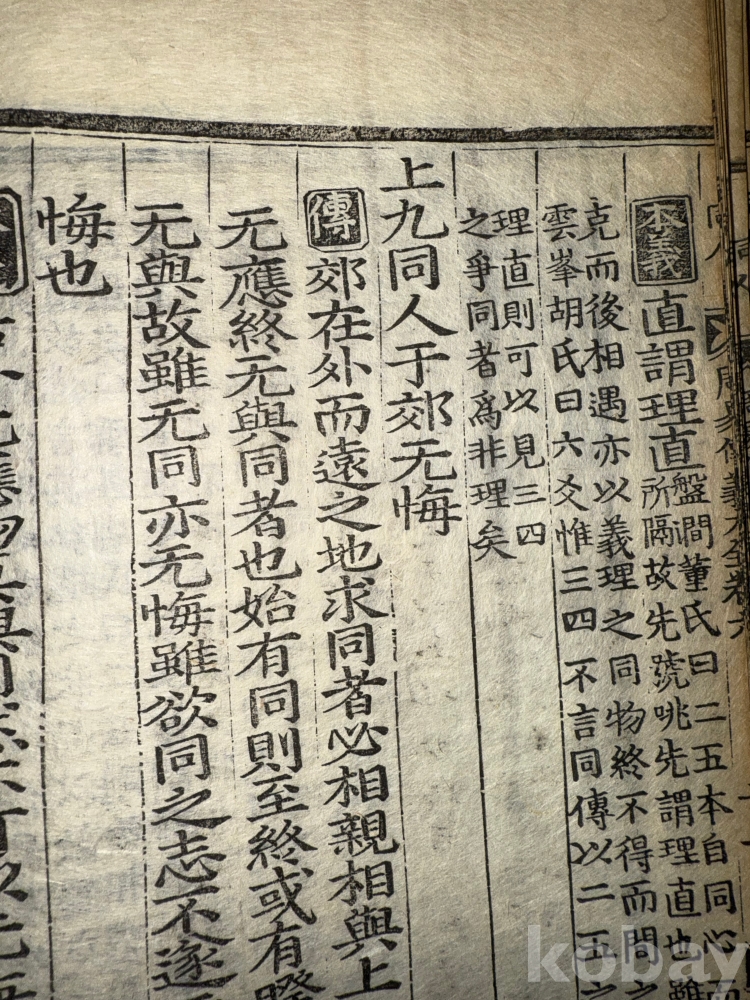 周易傳義大全卷六
本義
直謂理直
盤澗董氏曰二五本自同心
所隔故先號咷先謂理直也雖
克而後相遇亦以義理之同物終不得而間之
雲峯胡氏曰六爻惟三四不言同傳以二五之
理直則可以見三四
之爭同者爲非理矣
上九同人于郊无悔
傳
郊在外而遠之地求同者必相親相與上
无應終无與同者也始有同則至終或有睽
无與故雖无同亦无悔雖欲同之志不遂
悔也
kobay